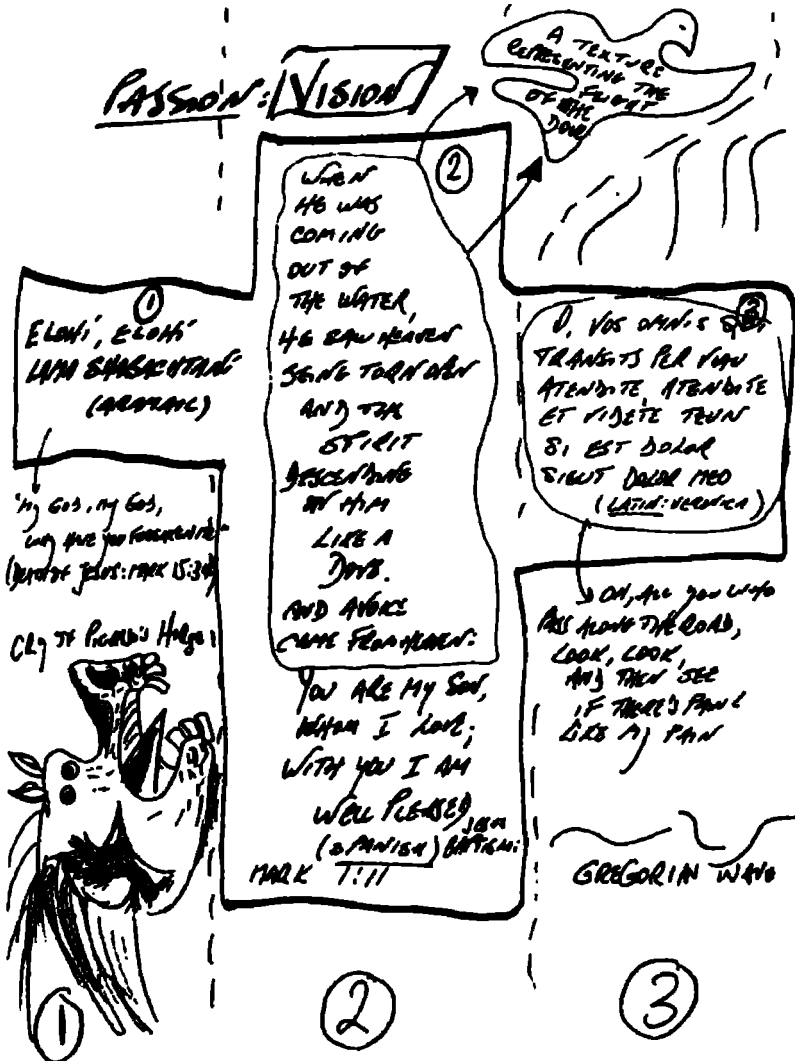 PASSION: VISION
A TEXTURE
REPRESENTING THE
FLIGHT
OF THE
DOVE
1
ELOHÍ, ELOHÍ
LAMA SHABACHTANÍ
(ARAMAIC)
"My GOD, My GOD,
WHY HAVE YOU FORSAKEN ME"
(DEATH OF JESUS: MARK 15:34)
CRY OF PICASSO'S HORSE:
1
2
WHEN
HE WAS
COMING
OUT OF
THE WATER,
HE SAW HEAVEN
BEING TORN OPEN
AND THE
SPIRIT
DESCENDING
ON HIM
LIKE A
DOVE.
AND A VOICE
CAME FROM HEAVEN:
YOU ARE MY SON,
WHOM I LOVE;
WITH YOU I AM
WELL PLEASED
(SPANISH) JESUS BAPTISM:
MARK 1:11
2
O, VOS OMNIS
TRANSITS PER VIAM
ATENDITE, ATENDITE
ET VIDETE
SI EST DOLOR
SICUT DOLOR MEO
(LATIN: VERONICA)
OH, ALL YOU WHO
PASS ALONG THE ROAD,
LOOK, LOOK,
AND THEN SEE
IF THERE'S PAIN
LIKE MY PAIN
GREGORIAN WAVE
3